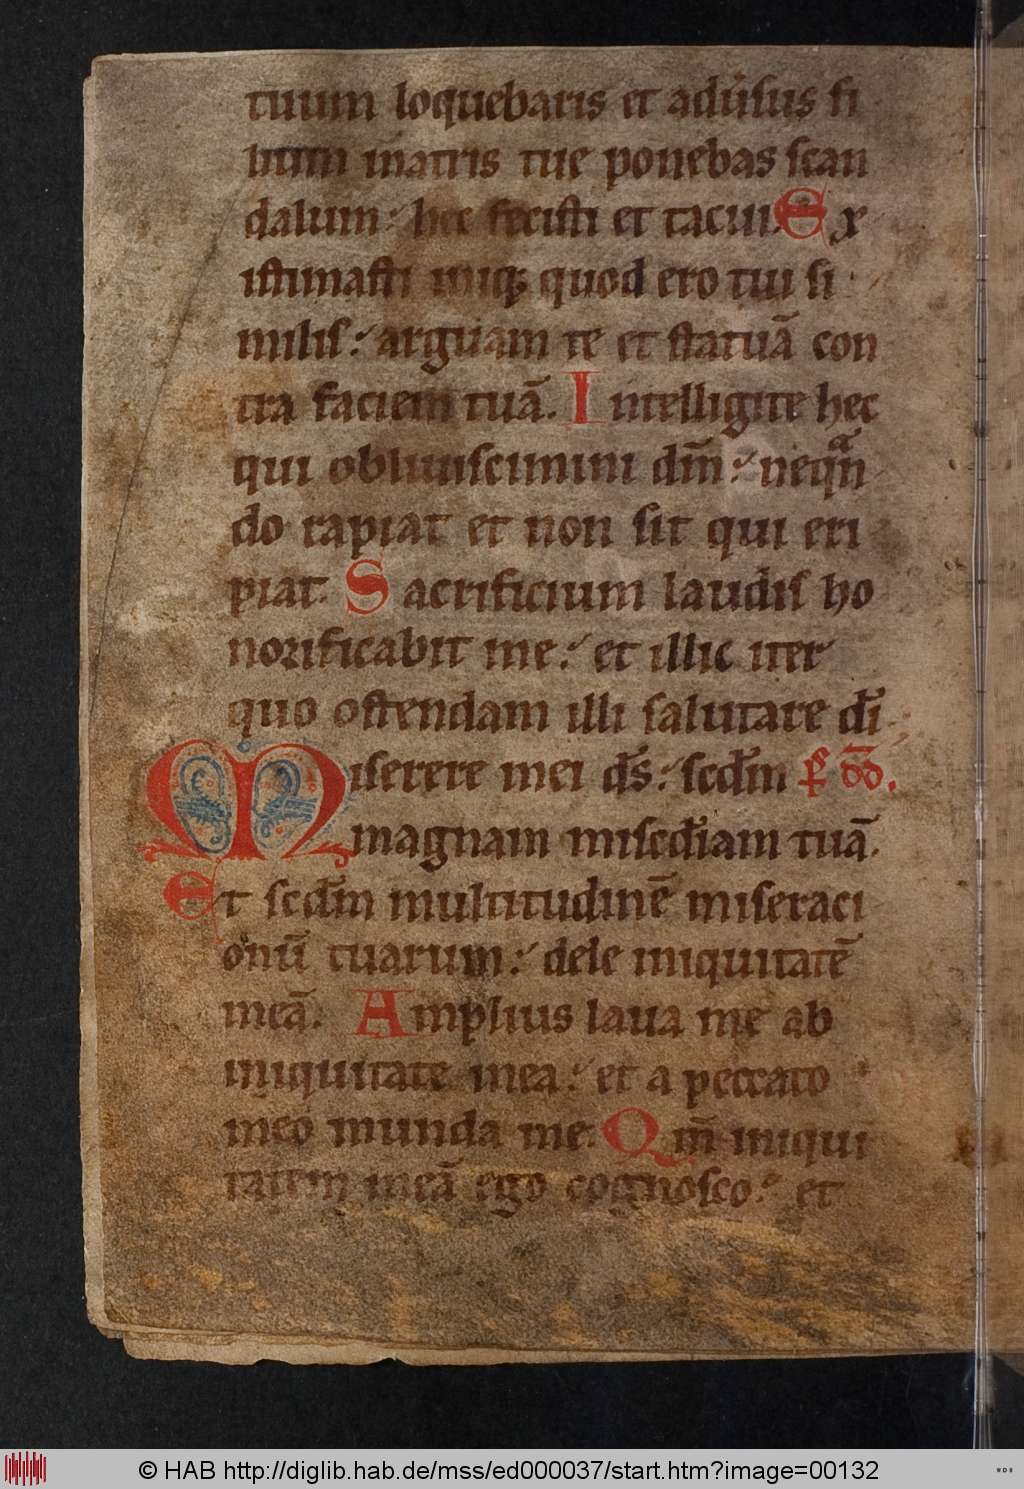 tuum loquebaris et adu͛sus fi
lium matris tue ponebas scan
dalum: hec fecisti et tacui. Ex
istimasti iniq; quod ero tui si
milis: arguam te et statuā con
tra faciem tuā. Intelligite hec
qui obliuiscimini dm̄: neqn̄
do rapiat et non sit qui eri
piat. Sacrificium laudis ho
norificabit me: et illic iter
quo ostendam illi salutare di͞
Miserere mei ds̄: scdm̄ p͛ dd̄.
magnam mis͞cdiam tuā.
Et scdm̄ multitudinē miseraci
onū tuarum: dele iniquitatē
meā. Amplius laua me ab
iniquitate mea: et a peccato
meo munda me. Qm̄ iniqui
tatem meā ego cognosco: et
© HAB http://diglib.hab.de/mss/ed000037/start.htm?image=00132